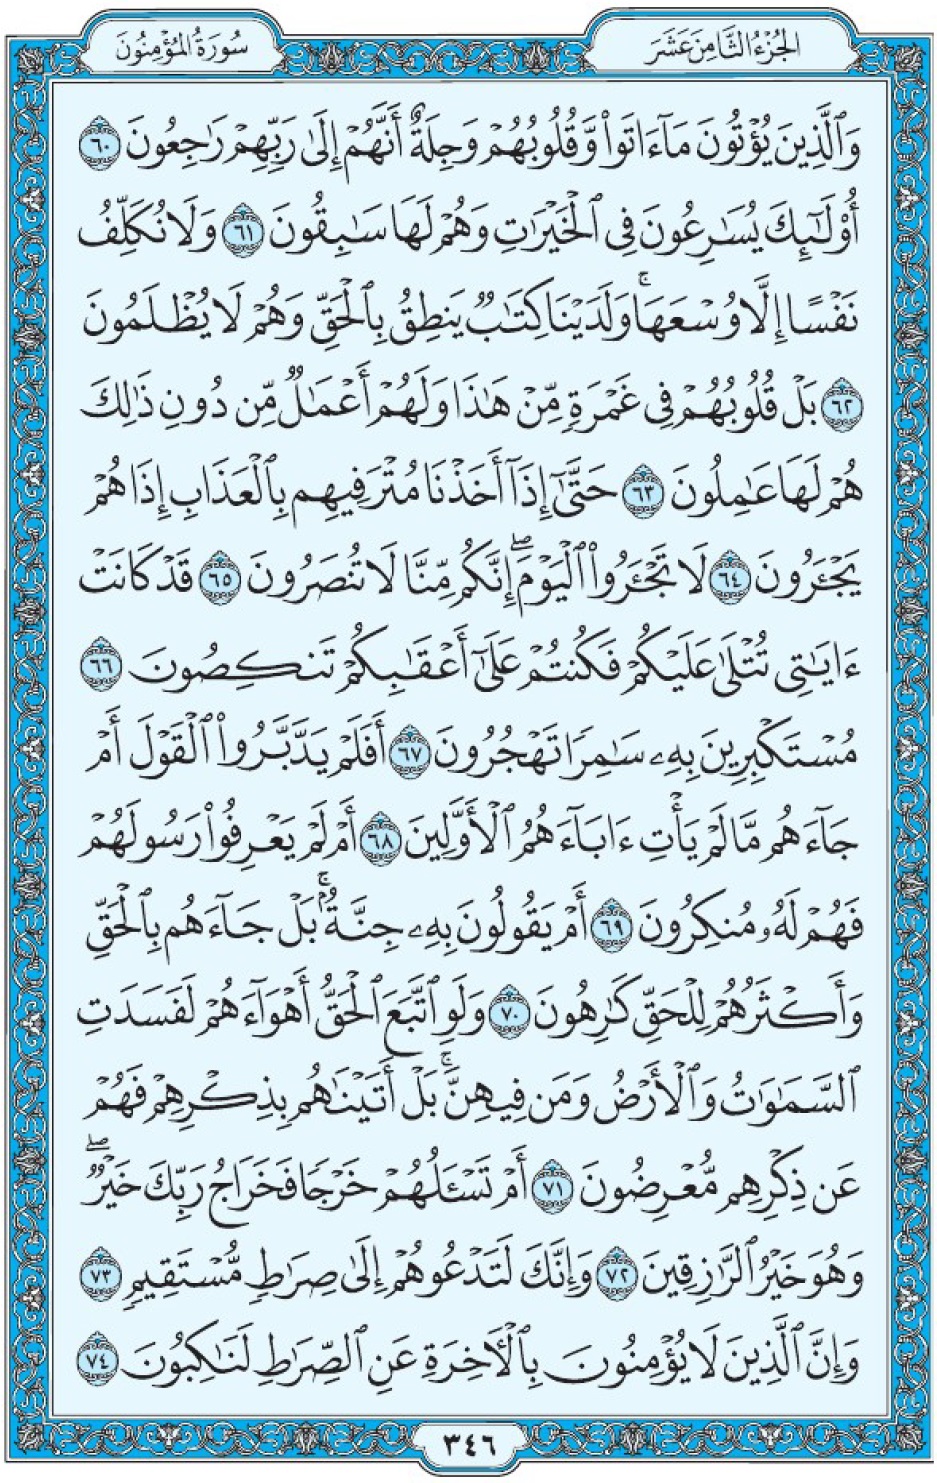 الجُزْءُ الثَّامِنَ عَشَرَ
سُورَةُ المُؤْمِنُونَ
وَٱلَّذِينَ يُؤْتُونَ مَآ ءَاتَوا۟ وَّقُلُوبُهُمْ وَجِلَةٌ أَنَّهُمْ إِلَىٰ رَبِّهِمْ رَٰجِعُونَ ٦٠
أُو۟لَٰٓئِكَ يُسَٰرِعُونَ فِى ٱلْخَيْرَٰتِ وَهُمْ لَهَا سَٰبِقُونَ ٦١ وَلَا نُكَلِّفُ
نَفْسًا إِلَّا وُسْعَهَا ۚ وَلَدَيْنَا كِتَٰبٌ يَنطِقُ بِٱلْحَقِّ وَهُمْ لَا يُظْلَمُونَ
٦٢ بَلْ قُلُوبُهُمْ فِى غَمْرَةٍ مِّنْ هَٰذَا وَلَهُمْ أَعْمَٰلٌ مِّن دُونِ ذَٰلِكَ
هُمْ لَهَا عَٰمِلُونَ ٦٣ حَتَّىٰٓ إِذَآ أَخَذْنَا مُتْرَفِيهِم بِٱلْعَذَابِ إِذَا هُمْ
يَجْـَٔرُونَ ٦٤ لَا تَجْـَٔرُوا۟ ٱلْيَوْمَ ۖ إِنَّكُم مِّنَّا لَا تُنصَرُونَ ٦٥ قَدْ كَانَتْ
ءَايَٰتِى تُتْلَىٰ عَلَيْكُمْ فَكُنتُمْ عَلَىٰٓ أَعْقَٰبِكُمْ تَنكِصُونَ ٦٦
مُسْتَكْبِرِينَ بِهِۦ سَٰمِرًا تَهْجُرُونَ ٦٧ أَفَلَمْ يَدَّبَّرُوا۟ ٱلْقَوْلَ أَمْ
جَآءَهُم مَّا لَمْ يَأْتِ ءَابَآءَهُمُ ٱلْأَوَّلِينَ ٦٨ أَمْ لَمْ يَعْرِفُوا۟ رَسُولَهُمْ
فَهُمْ لَهُۥ مُنكِرُونَ ٦٩ أَمْ يَقُولُونَ بِهِۦ جِنَّةٌۢ ۚ بَلْ جَآءَهُم بِٱلْحَقِّ
وَأَكْثَرُهُمْ لِلْحَقِّ كَٰرِهُونَ ٧٠ وَلَوِ ٱتَّبَعَ ٱلْحَقُّ أَهْوَآءَهُمْ لَفَسَدَتِ
ٱلسَّمَٰوَٰتُ وَٱلْأَرْضُ وَمَن فِيهِنَّ ۚ بَلْ أَتَيْنَٰهُم بِذِكْرِهِمْ فَهُمْ
عَن ذِكْرِهِم مُّعْرِضُونَ ٧١ أَمْ تَسْـَٔلُهُمْ خَرْجًا فَخَرَاجُ رَبِّكَ خَيْرٌ ۖ
وَهُوَ خَيْرُ ٱلرَّٰزِقِينَ ٧٢ وَإِنَّكَ لَتَدْعُوهُمْ إِلَىٰ صِرَٰطٍ مُّسْتَقِيمٍ ٧٣
وَإِنَّ ٱلَّذِينَ لَا يُؤْمِنُونَ بِٱلْـَٔاخِرَةِ عَنِ ٱلصِّرَٰطِ لَنَٰكِبُونَ ٧٤
٣٤٦